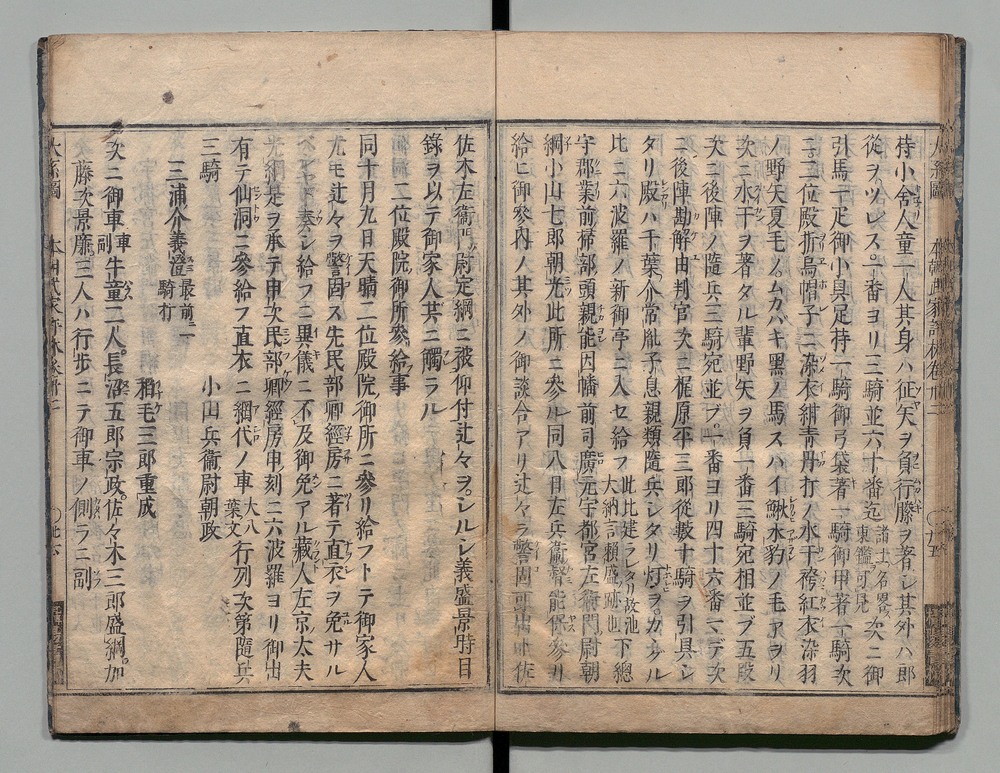 持小舎人童一人其身ハ征矢ヲ負行縢ヲ著シ其外ハ郎
從ヲツレス。一番ヨリ三騎並六十番迄 諸士名畧ス東鑑可見 次ニ御
引馬一疋御小具足持一騎御弓袋著一騎御甲著一騎次
ニ。二位殿折烏帽子ニ染衣紺青丹打ノ水干袴紅衣染羽
ノ野矢夏毛ノ。ムカバキ黒ノ馬スハイ鞦水豹ノ毛アヲリ
次ニ水干ヲ著タル輩野矢ヲ負一番三騎宛相並ブ五段
次ニ後陣ノ隨兵三騎宛並ブ。一番ヨリ四十六番マデ次
ニ後陣勘解由判官次ニ梶原平三郎從数十騎ヲ引具シ
タリ殿ハ千葉介常胤子息親類隨兵シタリ灯ヲ。カヽグル
比ニ六波羅ノ新御亭ニ入セ給フ 此比建ラレタリ故池大納言頼盛ノ跡也 下総
守郡業前掃部頭親能因幡前司廣元宇都宮左衛門尉朝
綱小山七郎朝光此所ニ參ル同八日左兵衛督能保參リ
給ヒ御參内ノ其外ノ御談合アリ辻々ヲ警固可
佐木左衛門尉定綱ニ被仰付辻々ヲ。シルシ義盛景時目
錄ヲ以テ御家人其ニ觸ラル
同十月九日天晴二位殿院御所參給事
同十月九日天晴二位殿院御所ニ參リ給フトテ御家人
尤モ辻々ヲ警固ス先民部卿經房ニ著テ直衣ヲ免サル
ベキヤト奏シ給フニ異儀ニ不及御免アル藏人左京大夫
光綱是ヲ承テ申次民部卿經房申刻ニ六波羅ヨリ御出
有テ仙洞ニ參給フ直衣ニ網代ノ車 大八葉文 行列次第隨兵
三騎 小山兵衛尉朝政
三浦介義澄 最前ニ騎行 稻毛三郎重成
次ニ御車 車副 牛童二人長沼五郎宗政。佐々木三郎盛綱。加
藤次景廉三人ハ行歩ニテ御車ノ側ラニ副